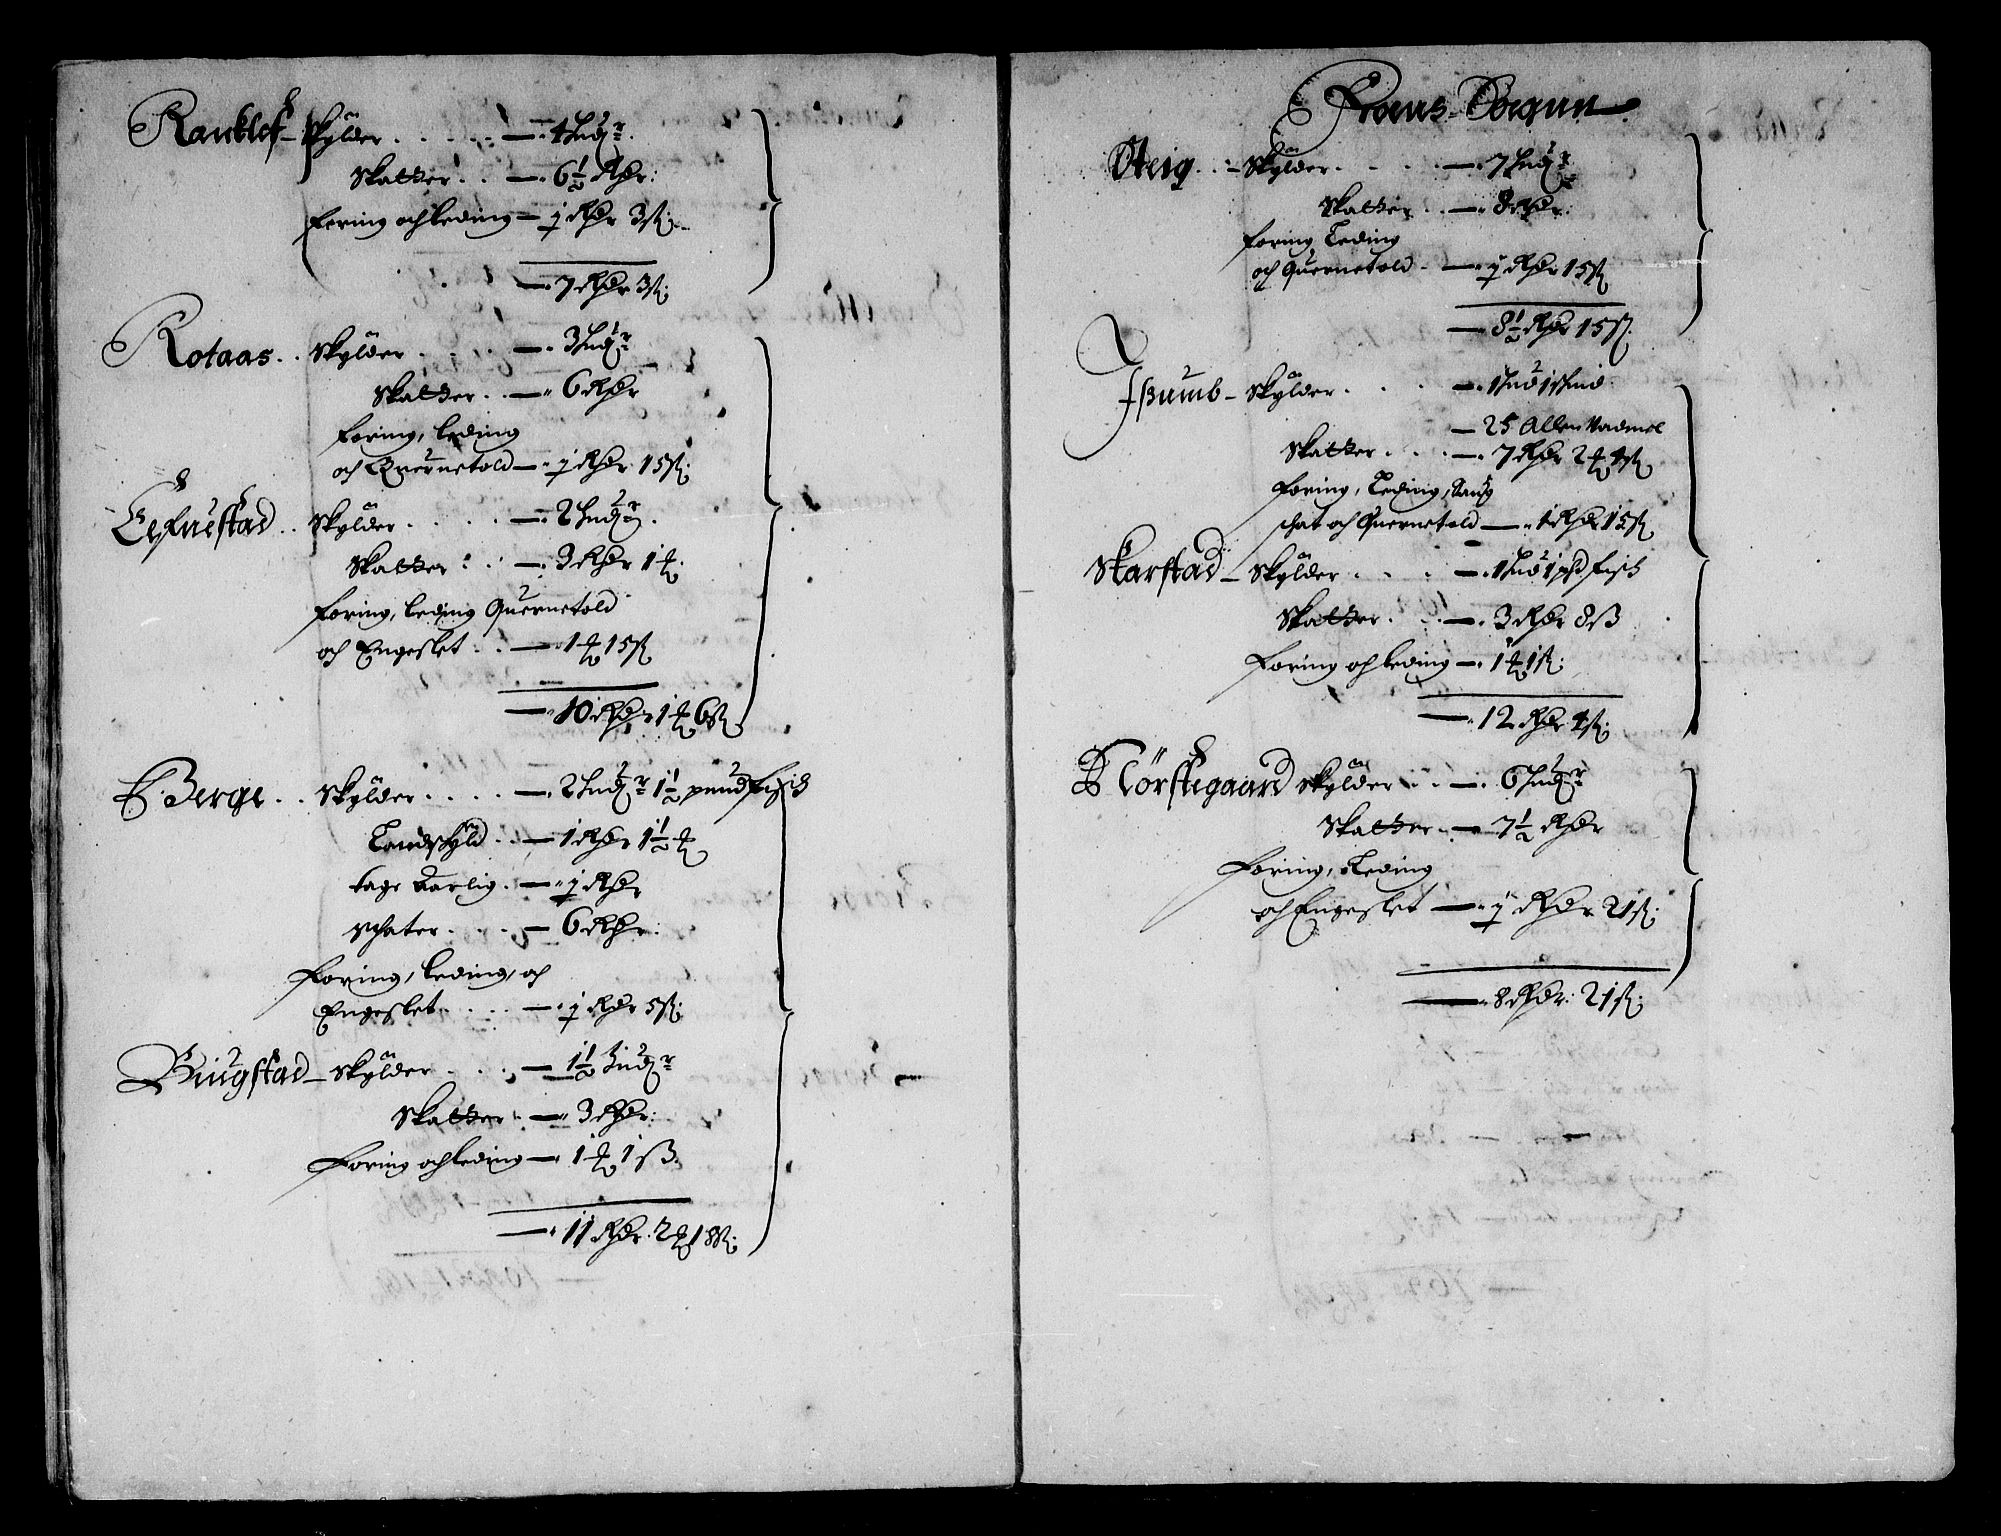 Ranklef – Skylder . . . . – 4 hud:r
Skatter . . – 6 1/2 Rdr:
foring och leding – j Rdr 3 ß:
– 7 Rdr 3 ß:
Rotaas . . Skylder . . . – 3 hud:r
Skatter . . – 6 Rdr
foring, leding
och Quernetold – j Rdr 15 ß:
Lefuestad . . Skylder . . . . – 2 hud:r
Skatter . . – 3 Rdr 1 ort
foring, leding Quernetold
och Engeslet . . – 1 ort 15 ß
– 10 Rdr 1 ort 6 ß
Berge . . Skylder . . . . – 2 hud:r 1 1/2 pund fisch
Landschyld . . – 1 Rdr 1 1/2 ort
tage Aarlig . – j Rdr
Schater . . . – 6 Rdr:
foring, leding, och
Engeslet . . . – j Rdr 5 ß:
Biugstad – Skylder . . . – 1 1/2 hud:r
Skatter . – 3 Rdr:
foring och leding – 1 ort 1 ß.
– 11 Rdr. 2 ort 18 ß:
Frons Sognn
Steig . . – Skylder . . . . – 7 hud:r
Skatter . . – 8 Rdr:
foring Leding
och Quernetold . – j Rdr 15 ß
– 8 1/2 Rdr 15 ß.
Isumb – Skylder . . . . – 1 hud 1 schind
– 25 Allen Vadmel
Skatter . . . – 7 Rdr 2 ort 4 ß
foring, Leding,
schat och Quernetold – 1 Rdr 15 ß
Skarstad – Skylder . . . – 1 hud 1 pd fisch
Skatter . . – 3 Rdr 8 ß
foring och leding – 1 ort 1 ß:
– 12 Rdr 4 ß:
Nörstegaard Skylder . . – 6 hud:er
Skatter . – 7 1/2 Rdr
foring, Leding
och Engeslet – j Rdr 21 ß:
– 8 Rdr: 21 ß: